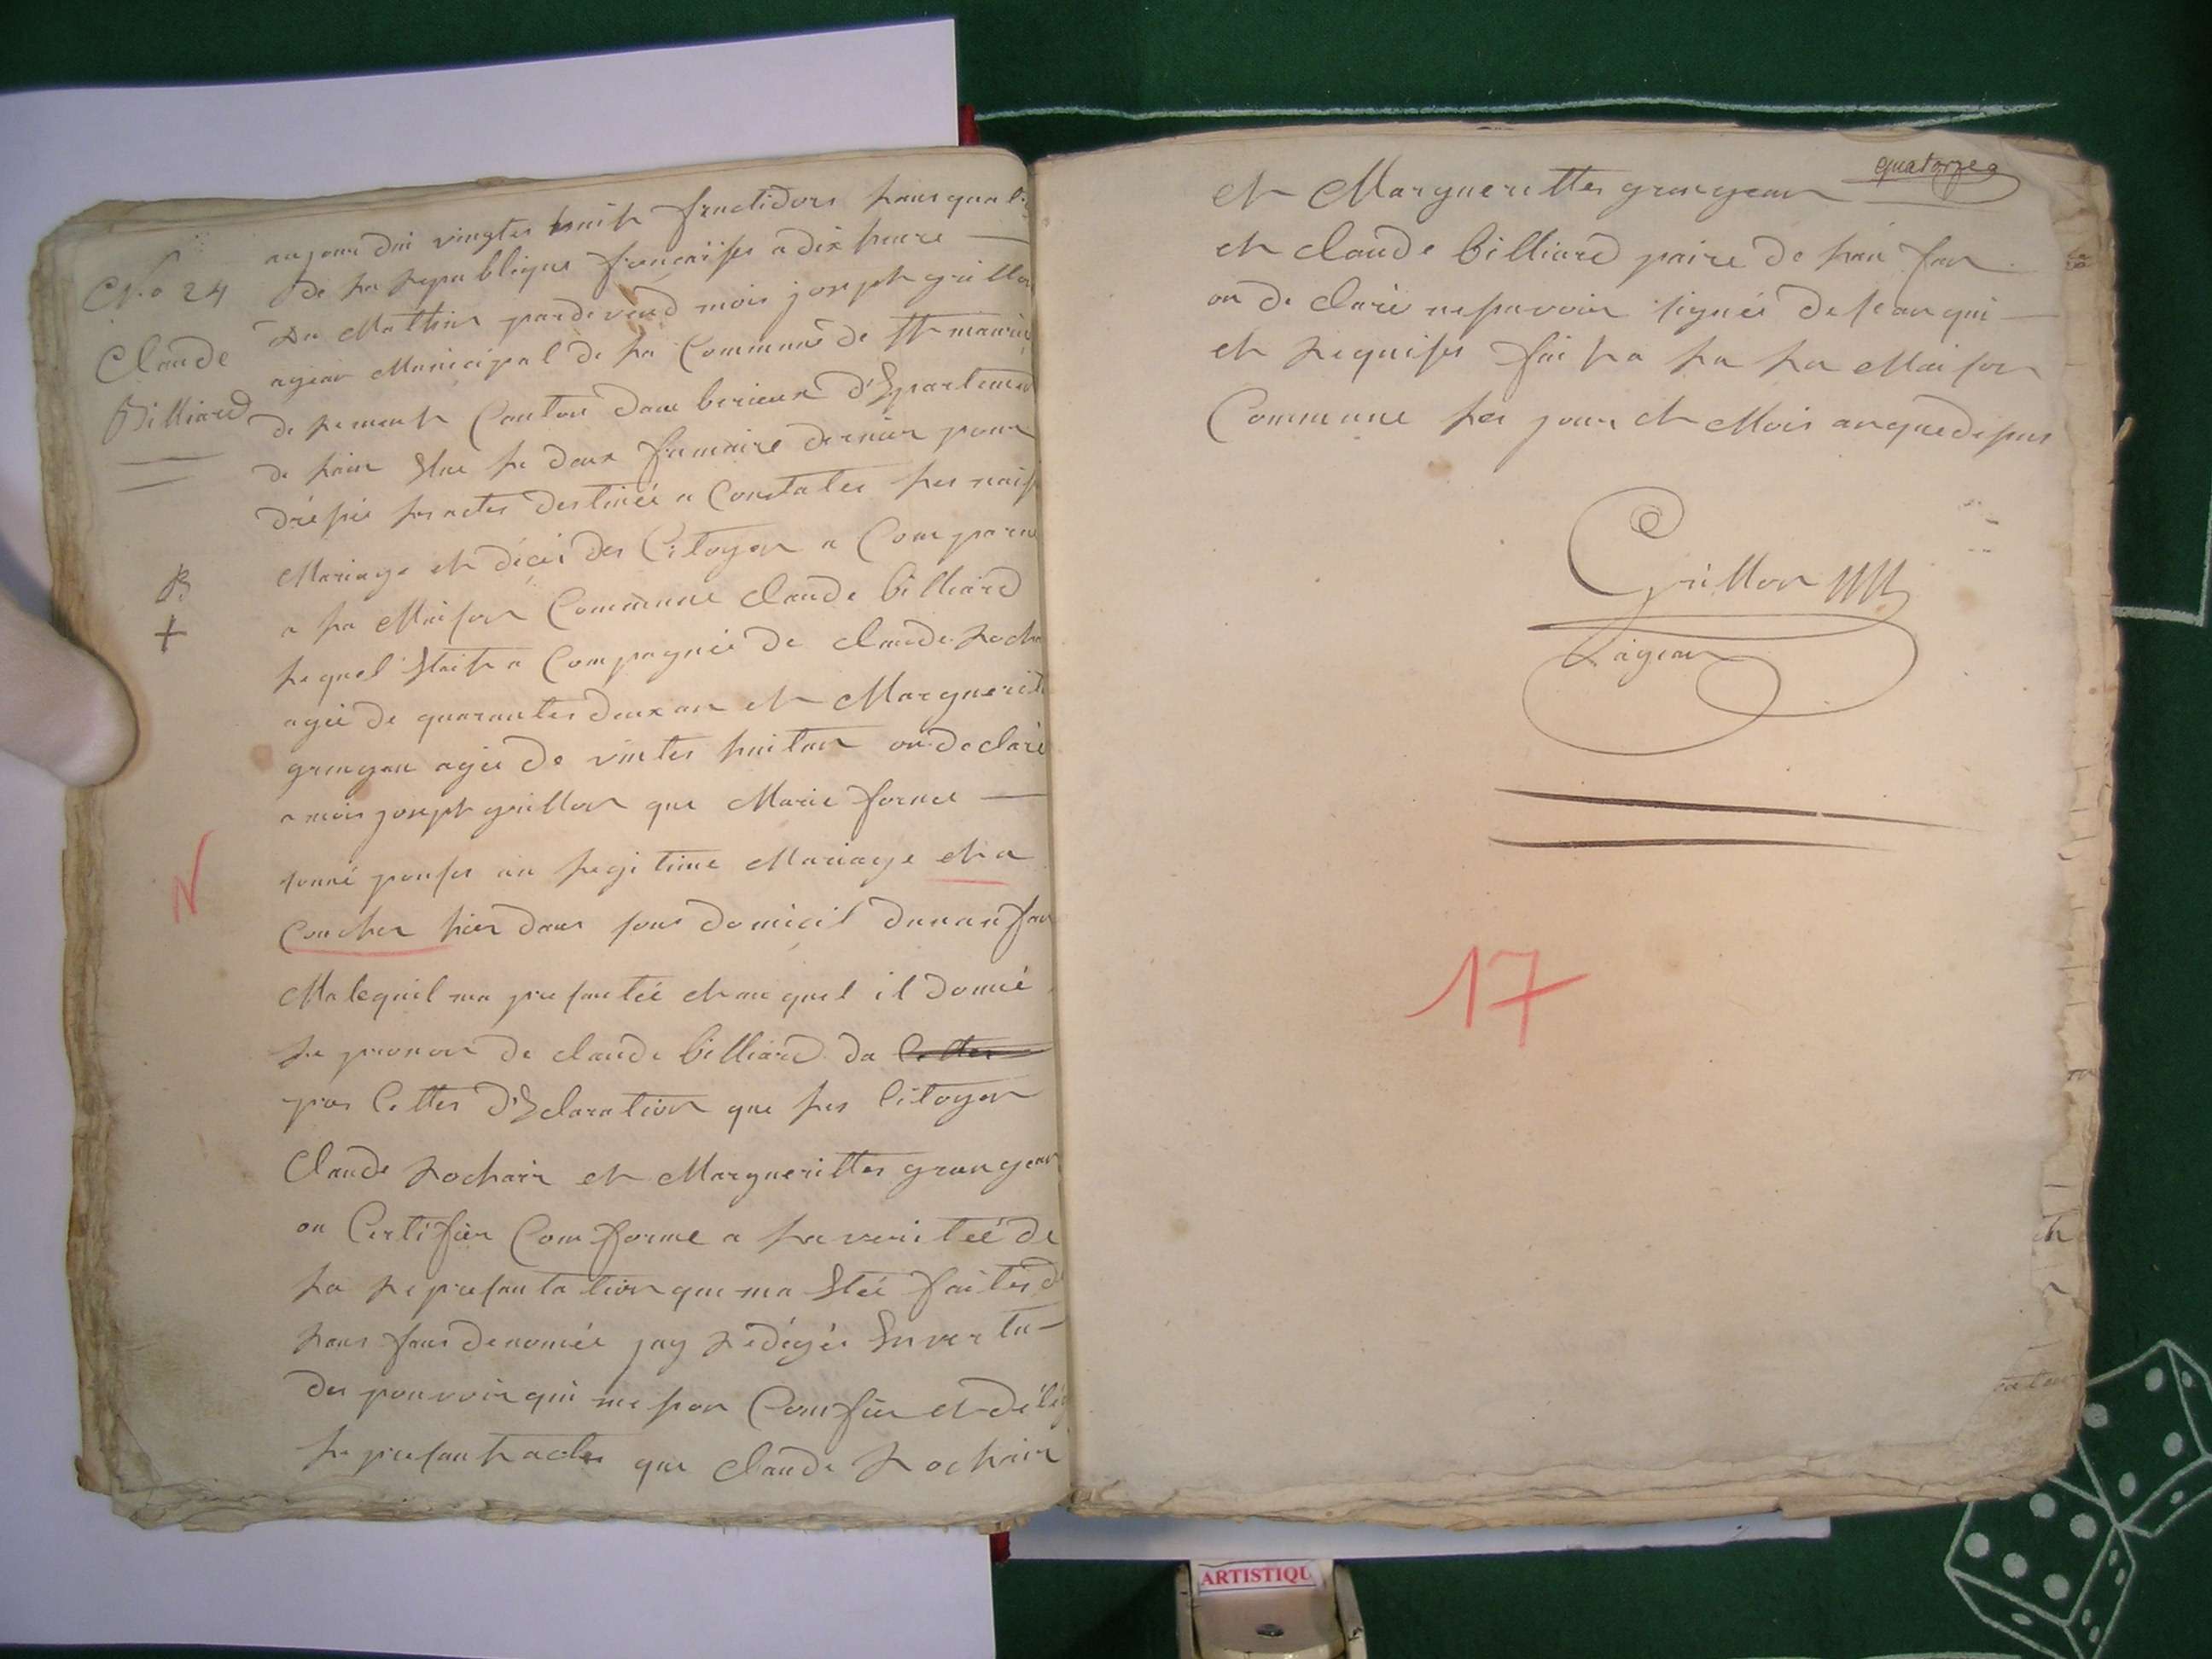 No 24
Claude
Billiard
B
+
N
aujourdui vingtes huit fructidors lans quat
de la Republique françaises a dix heure
du Mattin pardevend mois joseph grillon
agean Municipal de la Commune de St maurice
de remant Canton dam berieux d'Epartement
de lain Elue le deux frimaire dernier pour
drésié les actes destinée a Constater les naiss
Mariage et décéi des Citoyen a Comparue
a la Maison Commune Claude billiard
lequel Etait a Compagnié de claude Rocha
agée de quarantes deux an et Marguerit
grangean agée de vintes huit an on declaré
a mois joseph grillon que Marie fornel
sonné pouses an legitime Mariage et a
Coucher hier dans sons domicil dunanfan
Malequil ma presantée et au quel il donné
le pronon de claude billiard da Cettes
par Cettes d'Eclaration que les Citoyen
Claude Rochair et Marguerittes grangean
on Certifier Comforme a la veritée de
la Represantation que ma Etée faites d
lans fans denomée jay Rédigés Envertu
des pouvoir qui me son Comfier et délég
le presant actes que Claude Rochair
quatorze
et Marguerittes grangean
et claude billiard paire de lan fan
on de claré nesavoir signée de se an qui
et Requises fai ta la La Maison
Commune les jour et Mois an que desus
Grillon
Lagean
17
ARTISTIQU